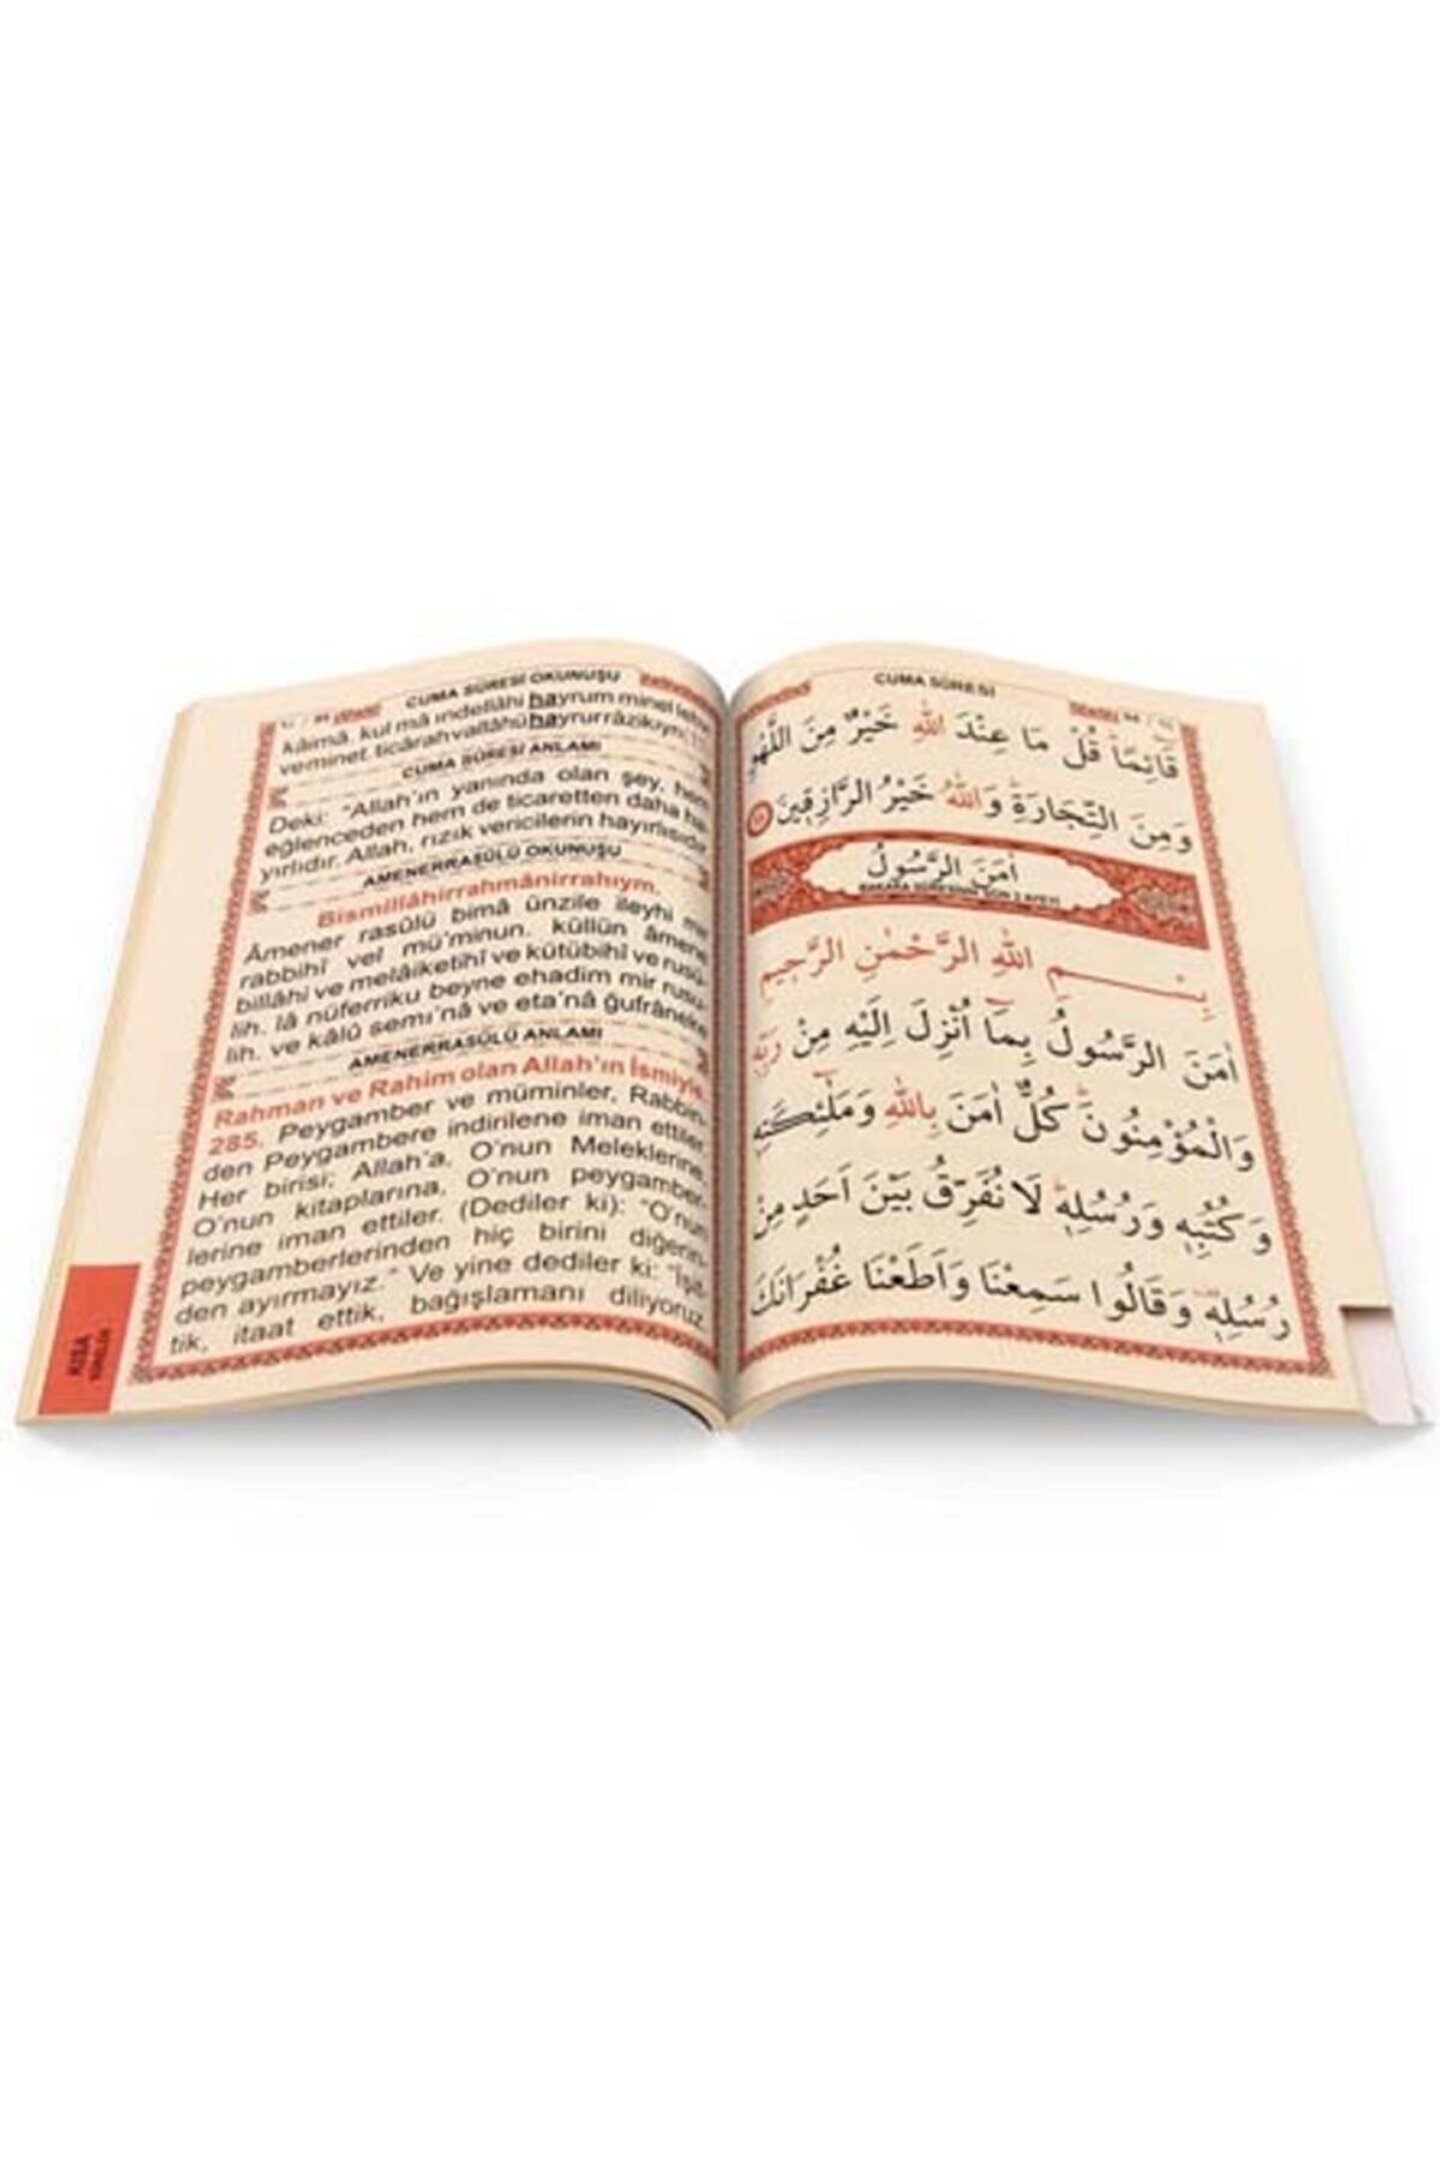 CUMA SÛRESİ OKUNUŞU
kâimâ. kul mâ ındellâhi hayrum minel lehvi
veminet. ticârah vallâhü hayrur râzikıyn.
CUMA SÛRESİ ANLAMI
Deki: "Allah'ın yanında olan şey, hem
eğlenceden hem de ticaretten daha ha-
yırlıdır. Allah, rızık vericilerin hayırlısıdır.
AMENERRASÜLÜ OKUNUŞU
Bismillâhirrahmânirrahıym.
Âmener rasûlü bimâ ünzile ileyhi mir
rabbihî vel mü'minun. küllün âmene
billâhi ve melâiketihî ve kütübihî ve rusü-
lih. lâ nüferriku beyne ehadim mir rusu-
lih. ve kâlû semı'nâ ve eta'nâ ğufrâneke
AMENERRASÜLÜ ANLAMI
Rahman ve Rahim olan Allah'ın İsmiyle.
285. Peygamber ve müminler, Rabbin-
den Peygambere indirilene iman ettiler.
Her birisi; Allah'a, O'nun Meleklerine,
O'nun kitaplarına, O'nun peygamber-
lerine iman ettiler. (Dediler ki): "O'nun
peygamberlerinden hiç birini diğerin-
den ayırmayız." Ve yine dediler ki: "İşit-
tik, itaat ettik, bağışlamanı diliyoruz
KISA
CUMA SÛRESİ
قَٓائِمًاۜ قُلْ مَا عِنْدَ اللّٰهِ خَيْرٌ مِنَ اللَّهْوِ
وَمِنَ التِّجَارَةِۜ وَاللّٰهُ خَيْرُ الرَّازِق۪ينَ
اٰمَنَ الرَّسُولُ
BAKARA SURESİNİN SON 2 AYETİ
بِسْمِ اللّٰهِ الرَّحْمٰنِ الرَّح۪يمِ
اٰمَنَ الرَّسُولُ بِمَٓا اُنْزِلَ اِلَيْهِ مِنْ رَبِّه۪
وَالْمُؤْمِنُونَۜ كُلٌّ اٰمَنَ بِاللّٰهِ وَمَلٰٓئِكَتِه۪
وَكُتُبِه۪ وَرُسُلِه۪ۜ لَا نُفَرِّقُ بَيْنَ اَحَدٍ مِنْ
رُسُلِه۪ۜ وَقَالُوا سَمِعْنَا وَاَطَعْنَا غُفْرَانَكَ